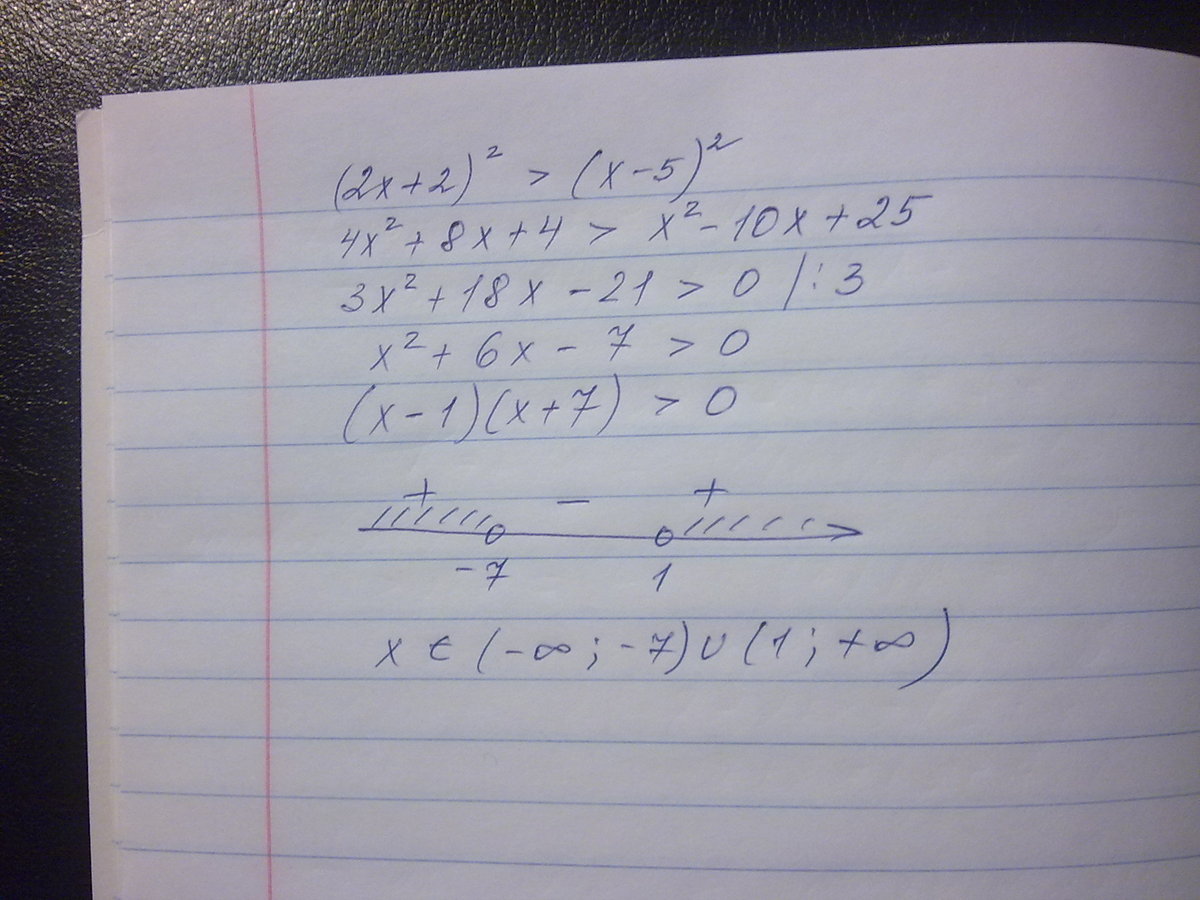 (2x+2)² > (x-5)²
4x²+8x+4 > x²-10x+25
3x²+18x-21 > 0 /:3
x²+6x-7 > 0
(x-1)(x+7) > 0
+ - +
-7 1
x ∈ (-∞;-7)∪(1;+∞)